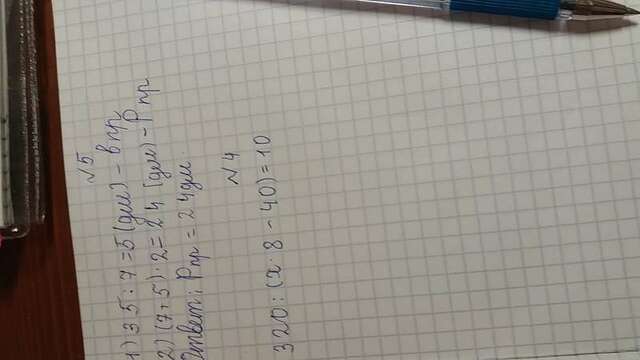 №5
1) 35 : 7 = 5 (дм) - b пр
2) (7+5) · 2 = 24 (дм) - P пр
Ответ: Pпр = 24дм.
№4
320 : (x · 8 - 40) = 10